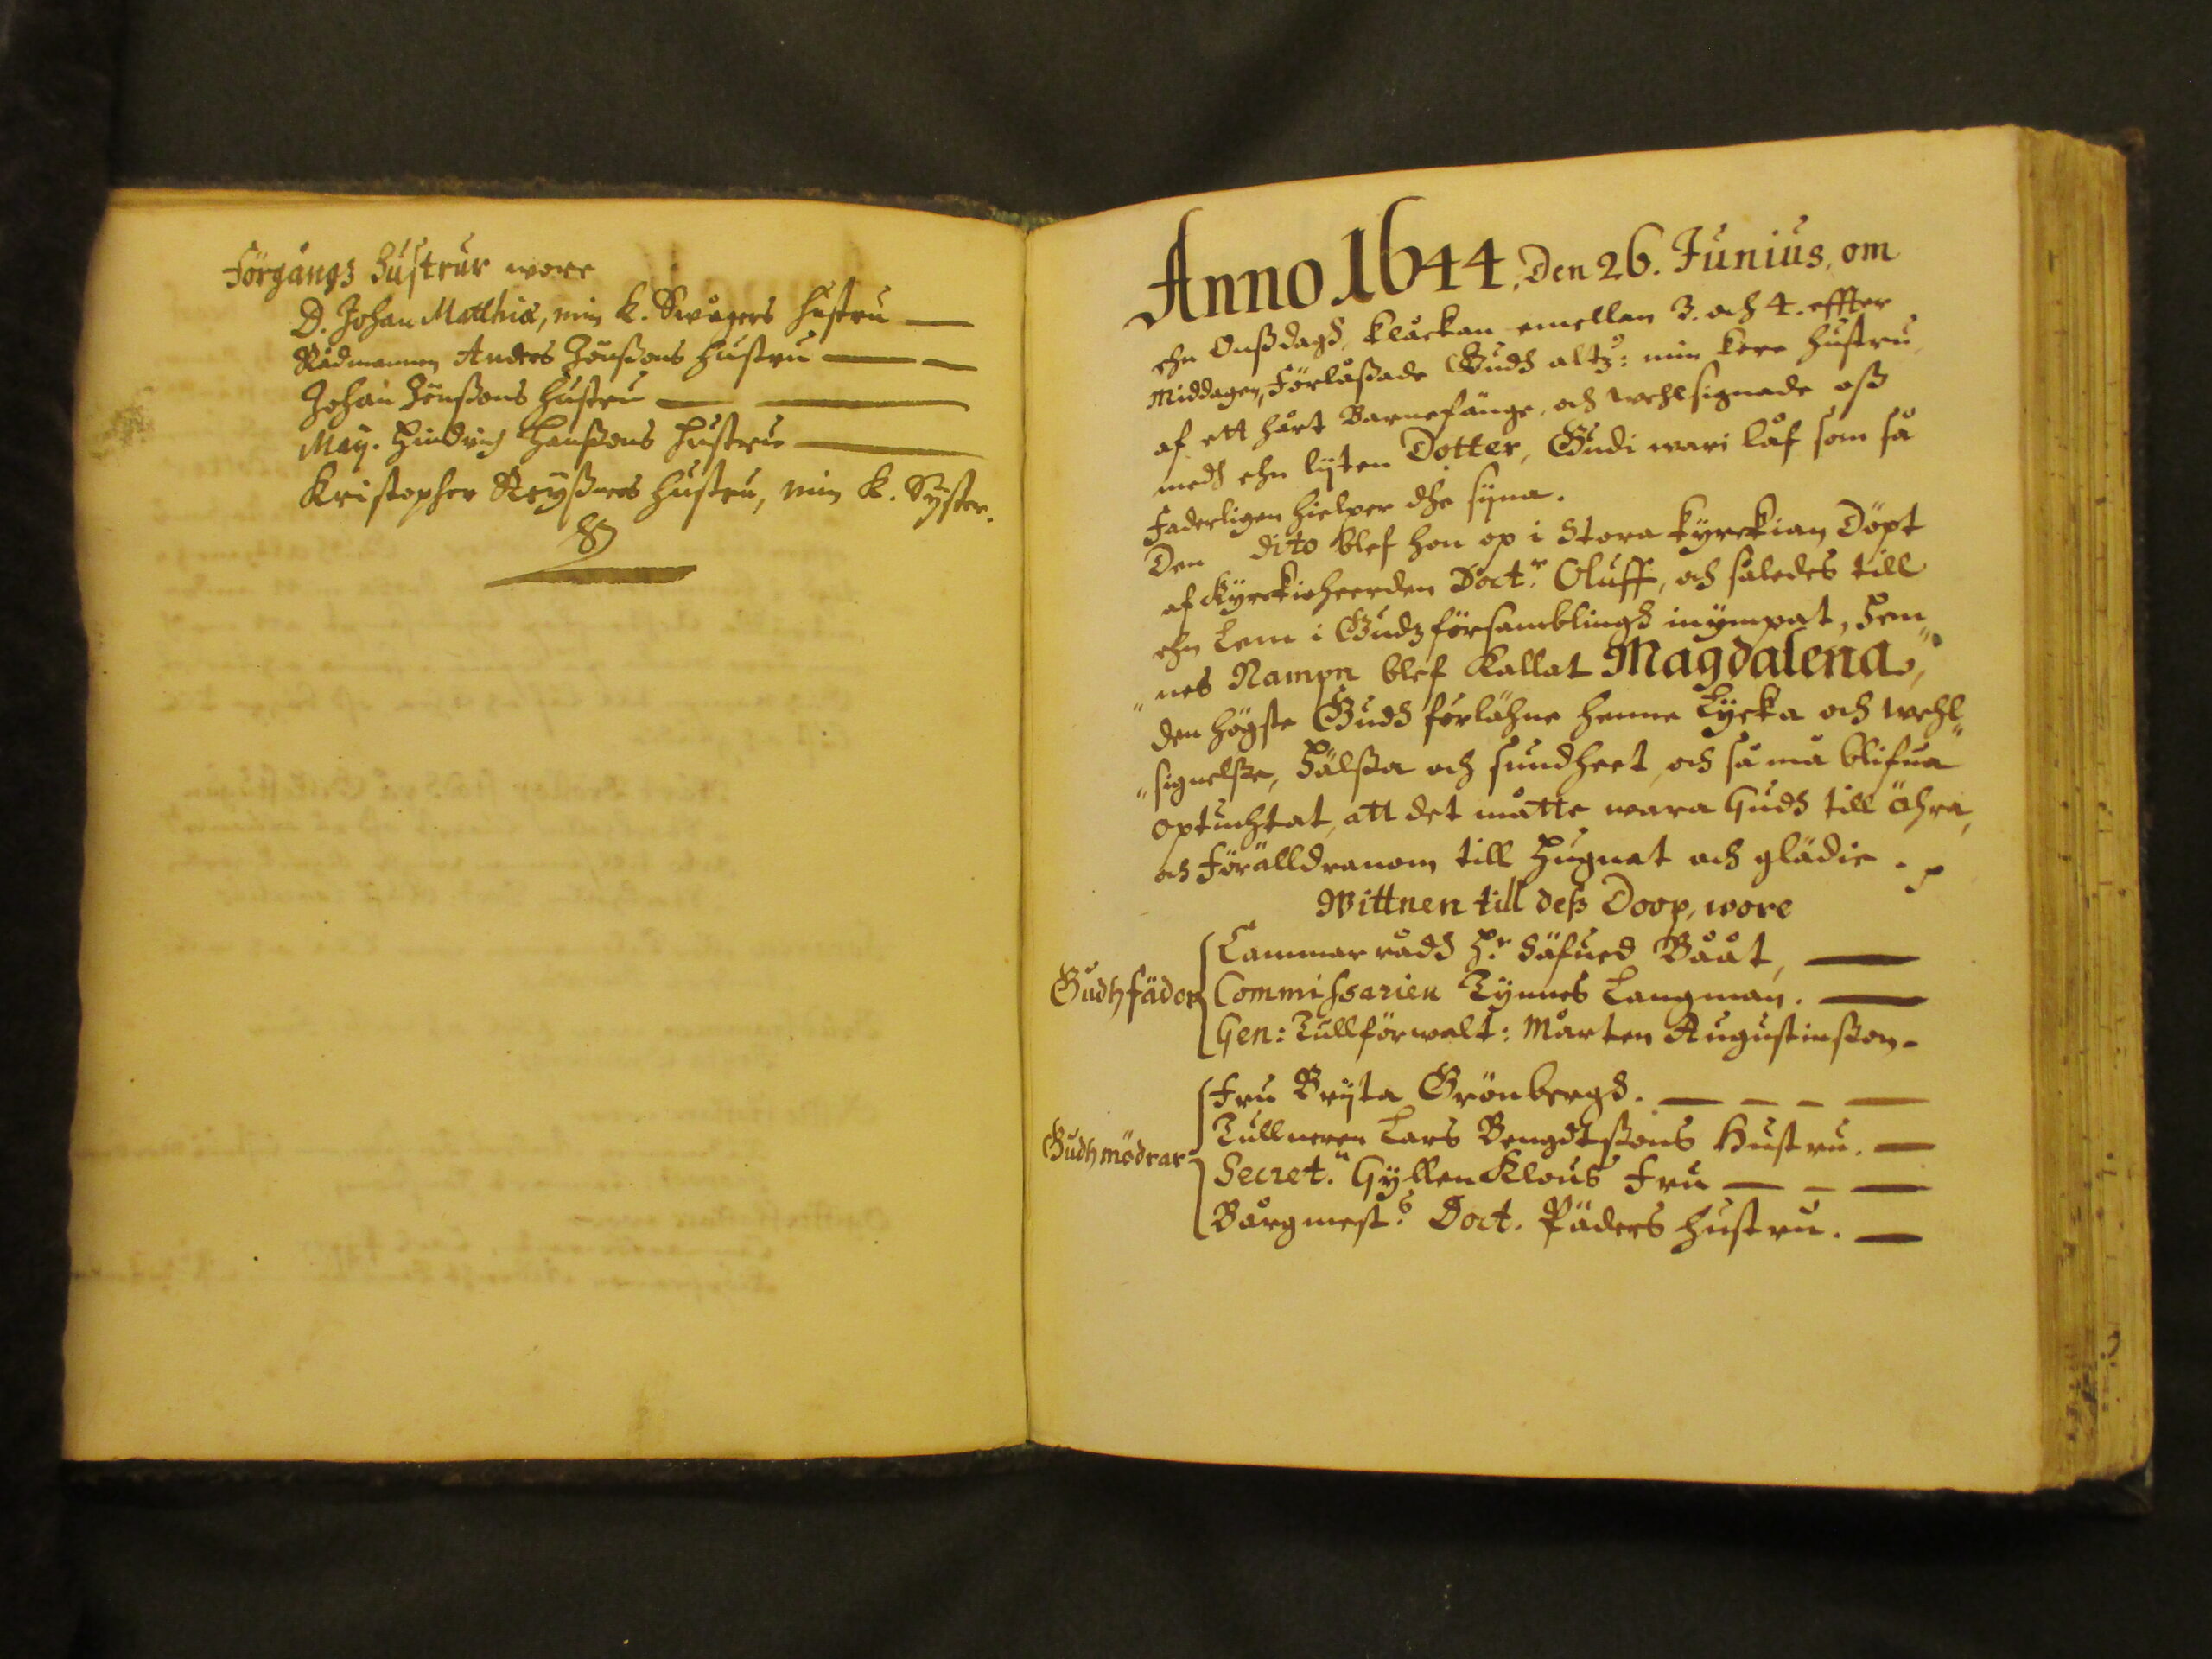 Förgångs Hustrur wore
D. Johan Matthiæ, min k. Swågers hustru
Rådmannen Anders Jönßons hustru
Johan Jönßons hustru
Maÿ. Hindrich Hanßons hustru
Kristopher Reÿßners hustru, min k. Sÿster.
Anno 1644, Den 26. Junius, om
ehn Onßdagh, klåckan emellan 3. och 4. effter
Middagen, Förlåßade Gudh altz: min kere hustru
af ett hårt Barnefänge, och wehlsignade oß
medh ehn lÿten Dotter, Gudi wari låf som så
Faderligen hielper dhe sÿna.
Den dito blef hon op i Stora kÿrckian Döpt
af Kÿrckioheerden Doct:r Oluff, och således till
ehn Lem i Gudz församblingh inÿmpat, Hen„
„nes Nampn blef Kallat Magdalena,
den högste Gudh förlähne henne Lÿcka och wehl„
„signelße, Hälßa och sundheet, och så må blifua
optuchtat, att det måtte wara Gudh till Ähra,
och Förälldranom till Hugnat och glädie.
Wittnen till deß Doop, wore
Gudhfäder
Cammar rådh H:r Säfued Bååt,
Commissarien Tÿnnes Langman.
Gen: Tullförwalt: Mårten Augustinßon
Gudhmödrar
Fru Brÿta Grönbergh.
Tullneren Lars Bengdtßons Hustru.
Secret:n Gÿllen Klous Fru
Bårgmest:s Doct. Päders hustru.